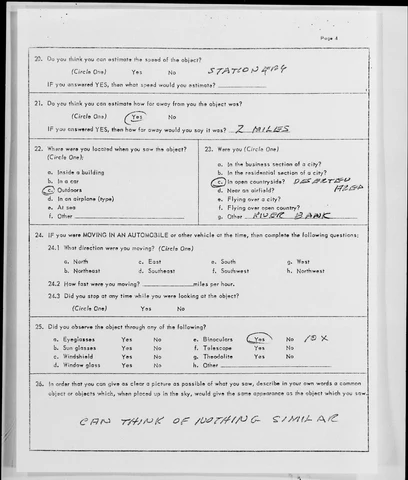 Page 4
20. Do you think you can estimate the speed of the object?
(Circle One) Yes No STATIONERY
IF you answered YES, then what speed would you estimate?
21. Do you think you can estimate how far away from you the object was?
(Circle One) Yes No
IF you answered YES, then how far away would you say it was? 2 MILES
22. Where were you located when you saw the object?
(Circle One):
a. Inside a building
b. In a car
c. Outdoors
d. In an airplane (type)
e. At sea
f. Other
23. Were you (Circle One)
a. In the business section of a city?
b. In the residential section of a city?
c. In open countryside? DESERTED AREA
d. Near an airfield?
e. Flying over a city?
f. Flying over open country?
g. Other RIVER BANK
24. IF you were MOVING IN AN AUTOMOBILE or other vehicle at the time, then complete the following questions:
24.1 What direction were you moving? (Circle One)
a. North c. East e. South g. West
b. Northeast d. Southeast f. Southwest h. Northwest
24.2 How fast were you moving? miles per hour.
24.3 Did you stop at any time while you were looking at the object?
(Circle One) Yes No
25. Did you observe the object through any of the following?
a. Eyeglasses Yes No e. Binoculars Yes No 10X
b. Sun glasses Yes No f. Telescope Yes No
c. Windshield Yes No g. Theodolite Yes No
d. Window glass Yes No h. Other
26. In order that you can give as clear a picture as possible of what you saw, describe in your own words a common
object or objects which, when placed up in the sky, would give the same appearance as the object which you saw.
CAN THINK OF NOTHING SIMILAR